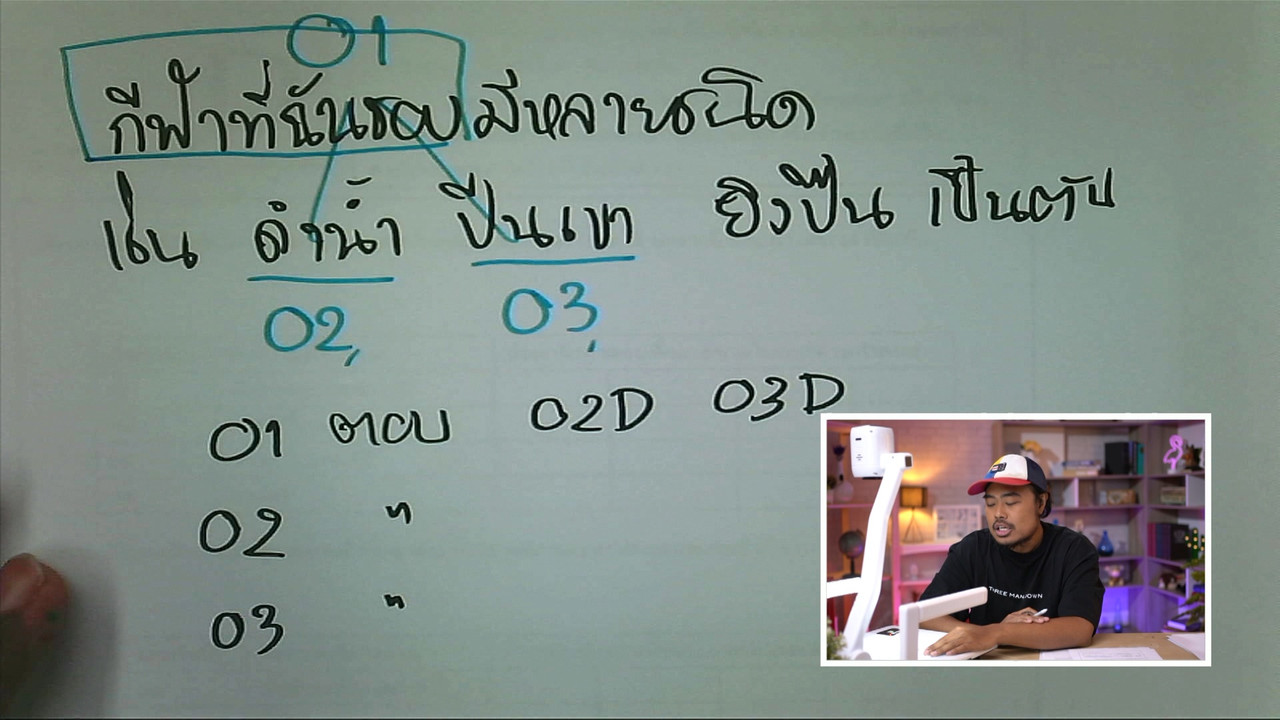 01
กีฬาที่ฉันชอบมีหลายชนิด
เช่น ดำน้ำ ปีนเขา ยิงปืน เป็นต้น
02, 03,
01 ตอบ 02D 03D
02 "
03 "
THREE MAN DOWN